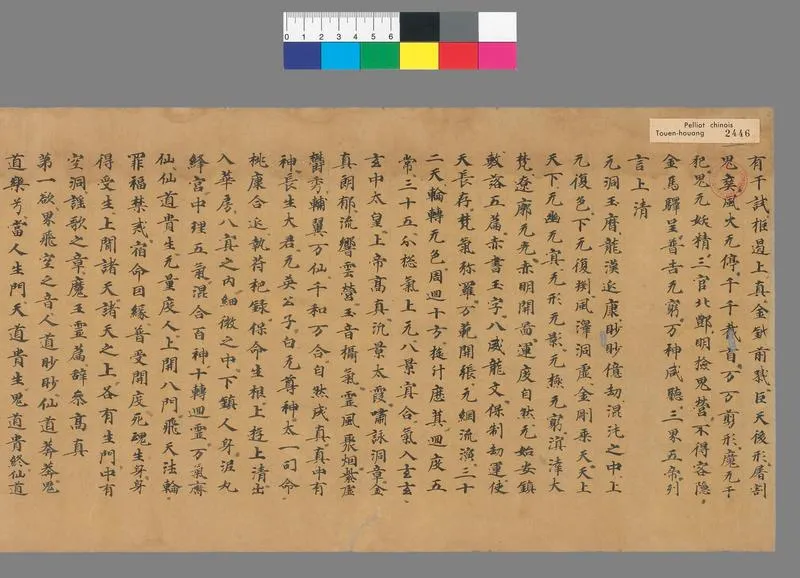 0 1 2 3 4 5 6
Pelliot chinois
Touen-houang 2446
有干試柜遏上真金鉞前戮巨天後形屠割
鬼爽風火无停千千截首万万剪形魔无干
犯鬼无妖精三官北酆明撿鬼營不得容隱
金馬驛呈普告无窮万神咸聽三界五帝列
言上清
元洞玉曆龍漢延康眇眇億劫混沌之中上
无復色下无復淵風澤洞虛金剛乘天天上
天下无幽无冥无形无影无極无窮溟涬大
梵遼廓无光赤明開啚運度自然元始安鎮
敷落五篇赤書玉字八威龍文保制劫運使
天長存梵氣弥羅万範開張元綱流演三十
二天輪轉无色周迴十方旋斗歷箕迴度五
常三十五分捴氣上元八景冥合氣入玄玄
玄中太皇上帝高真汎景太霞嘯詠洞章金
真朗郁流響雲營玉音攝氣靈風聚烟紫虛
鬱秀輔翼万仙千和万合自然成真真中有
神長生大君无英公子白元尊神太一司命
桃康合延執符把籙保命生根上遊上清出
入華房八真之內細微之中下鎮人身泥丸
絳宮中理五氣混合百神十轉迴靈万氣齊
仙仙道貴生无量度人上開八門飛天法輪
罪福禁戒宿命因緣普受開度死魂生身身
得受生上聞諸天諸天之上各有生門中有
空洞謠歌之章魔王靈篇辞參高真
第一欲界飛空之音人道眇眇仙道莽莽鬼
道樂兮當人生門天道貴生鬼道貴終仙道